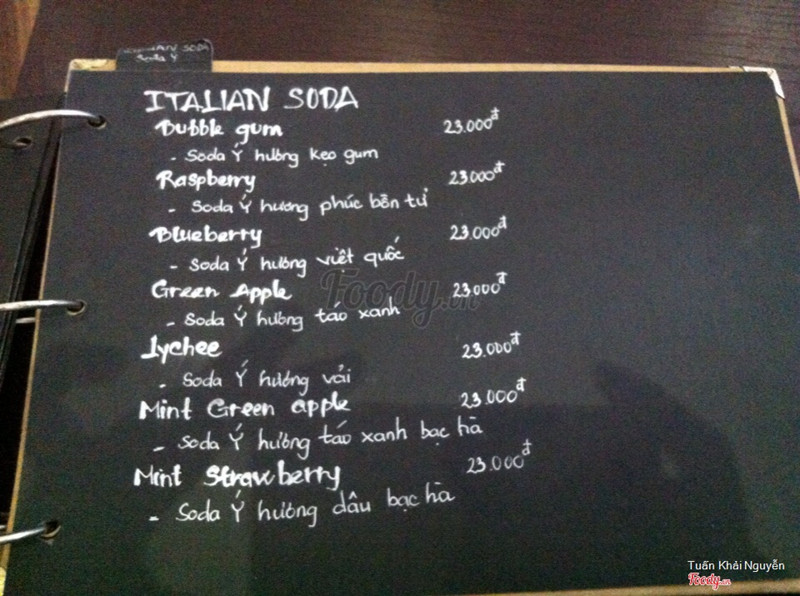 ITALIAN SODA
Soda Ý
ITALIAN SODA
Bubble gum 23.000đ
- Soda Ý hương kẹo gum
Raspberry 23.000đ
- Soda Ý hương phúc bồn tử
Blueberry 23.000đ
- Soda Ý hương việt quốc
Green Apple 23.000đ
- Soda Ý hương táo xanh
Lychee 23.000đ
- Soda Ý hương vải
Mint Green apple 23.000đ
- Soda Ý hương táo xanh bạc hà
Mint Strawberry 23.000đ
- Soda Ý hương dâu bạc hà
Foody.vn
Tuấn Khải Nguyễn
Foody.vn